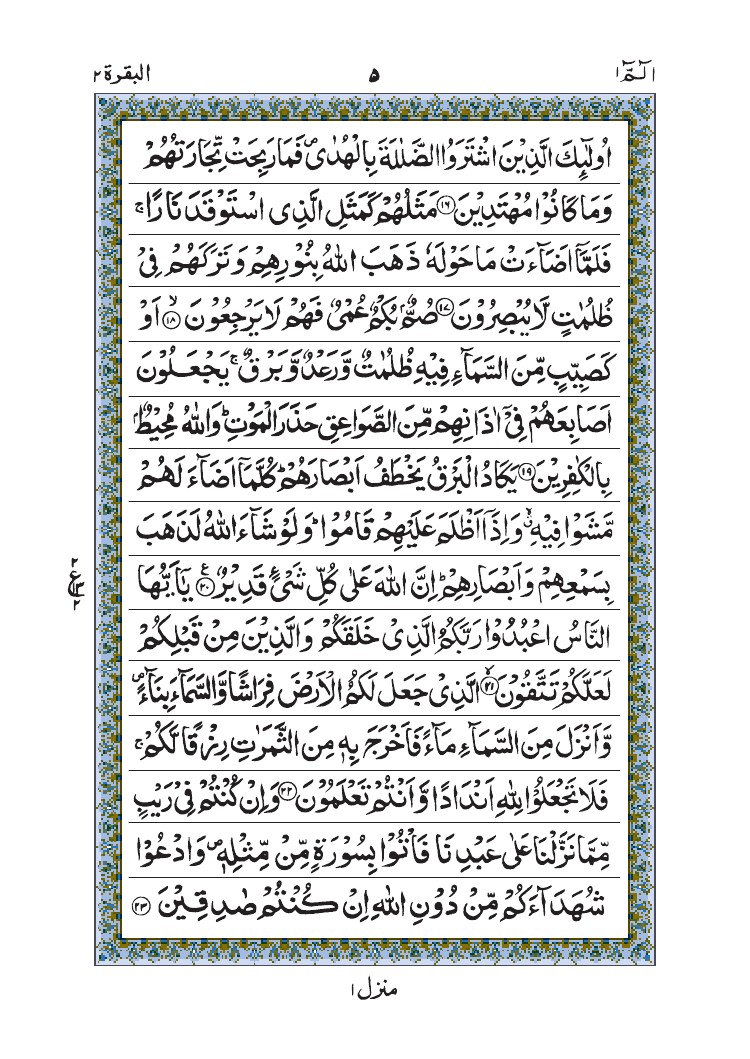 الٓمّٓ ١
٥
البقرة ٢
اُولٰٓئِكَ الَّذِيْنَ اشْتَرَوُا الضَّلٰلَةَ بِالْهُدٰى ۪ فَمَا رَبِحَتْ تِّجَارَتُهُمْ
وَمَا كَانُوْا مُهْتَدِيْنَ ﴿١٦﴾ مَثَلُهُمْ كَمَثَلِ الَّذِى اسْتَوْقَدَ نَارًا ۚ
فَلَمَّاۤ اَضَآءَتْ مَا حَوْلَهٗ ذَهَبَ اللّٰهُ بِنُوْرِهِمْ وَتَرَكَهُمْ فِىْ
ظُلُمٰتٍ لَّا يُبْصِرُوْنَ ﴿١٧﴾ صُمٌّۢ بُكْمٌ عُمْىٌ فَهُمْ لَا يَرْجِعُوْنَ ۙ﴿١٨﴾ اَوْ
كَصَيِّبٍ مِّنَ السَّمَآءِ فِيْهِ ظُلُمٰتٌ وَّرَعْدٌ وَّبَرْقٌ ۚ يَجْعَلُوْنَ
اَصَابِعَهُمْ فِىْۤ اٰذَانِهِمْ مِّنَ الصَّوَاعِقِ حَذَرَ الْمَوْتِ ؕ وَاللّٰهُ مُحِيْطٌۢ
بِالْكٰفِرِيْنَ ﴿١٩﴾ يَكَادُ الْبَرْقُ يَخْطَفُ اَبْصَارَهُمْ ؕ كُلَّمَاۤ اَضَآءَ لَهُمْ
مَّشَوْا فِيْهِ ۙ وَاِذَاۤ اَظْلَمَ عَلَيْهِمْ قَامُوْا ؕ وَلَوْ شَآءَ اللّٰهُ لَذَهَبَ
بِسَمْعِهِمْ وَاَبْصَارِهِمْ ؕ اِنَّ اللّٰهَ عَلٰى كُلِّ شَىْءٍ قَدِيْرٌ ﴿٢٠﴾ يٰۤاَيُّهَا
٢
ع
٢
النَّاسُ اعْبُدُوْا رَبَّكُمُ الَّذِىْ خَلَقَكُمْ وَالَّذِيْنَ مِنْ قَبْلِكُمْ
لَعَلَّكُمْ تَتَّقُوْنَ ۙ﴿٢١﴾ الَّذِىْ جَعَلَ لَكُمُ الْاَرْضَ فِرَاشًا وَّالسَّمَآءَ بِنَآءً ۪
وَّاَنْزَلَ مِنَ السَّمَآءِ مَآءً فَاَخْرَجَ بِهٖ مِنَ الثَّمَرٰتِ رِزْقًا لَّكُمْ ۚ
فَلَا تَجْعَلُوْا لِلّٰهِ اَنْدَادًا وَّاَنْتُمْ تَعْلَمُوْنَ ﴿٢٢﴾ وَاِنْ كُنْتُمْ فِىْ رَيْبٍ
مِّمَّا نَزَّلْنَا عَلٰى عَبْدِنَا فَاْتُوْا بِسُوْرَةٍ مِّنْ مِّثْلِهٖ ۪ وَادْعُوْا
شُهَدَآءَكُمْ مِّنْ دُوْنِ اللّٰهِ اِنْ كُنْتُمْ صٰدِقِيْنَ ﴿٢٣﴾
منزل ١